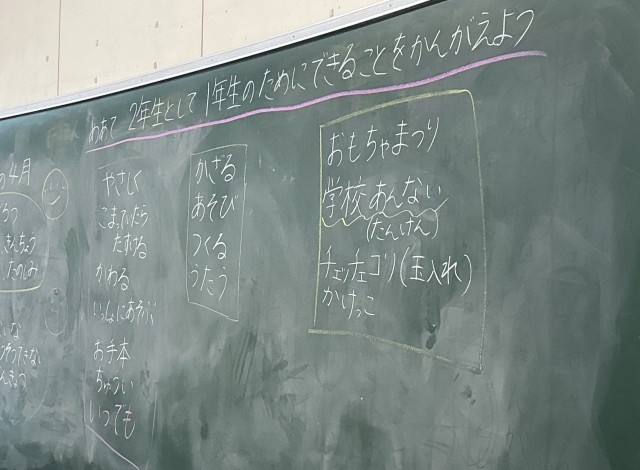 めあて 2年生として1年生のためにできることをかんがえよう
の4月
やさしく
こまっていたら
たすける
かわる
いっしょにあそぶ
お手本
ちゅうい
いつでも
かざる
あそび
つくる
うたう
おもちゃまつり
学校あんない
(たんけん)
チェッチェッコリ(玉入れ)
かけっこ